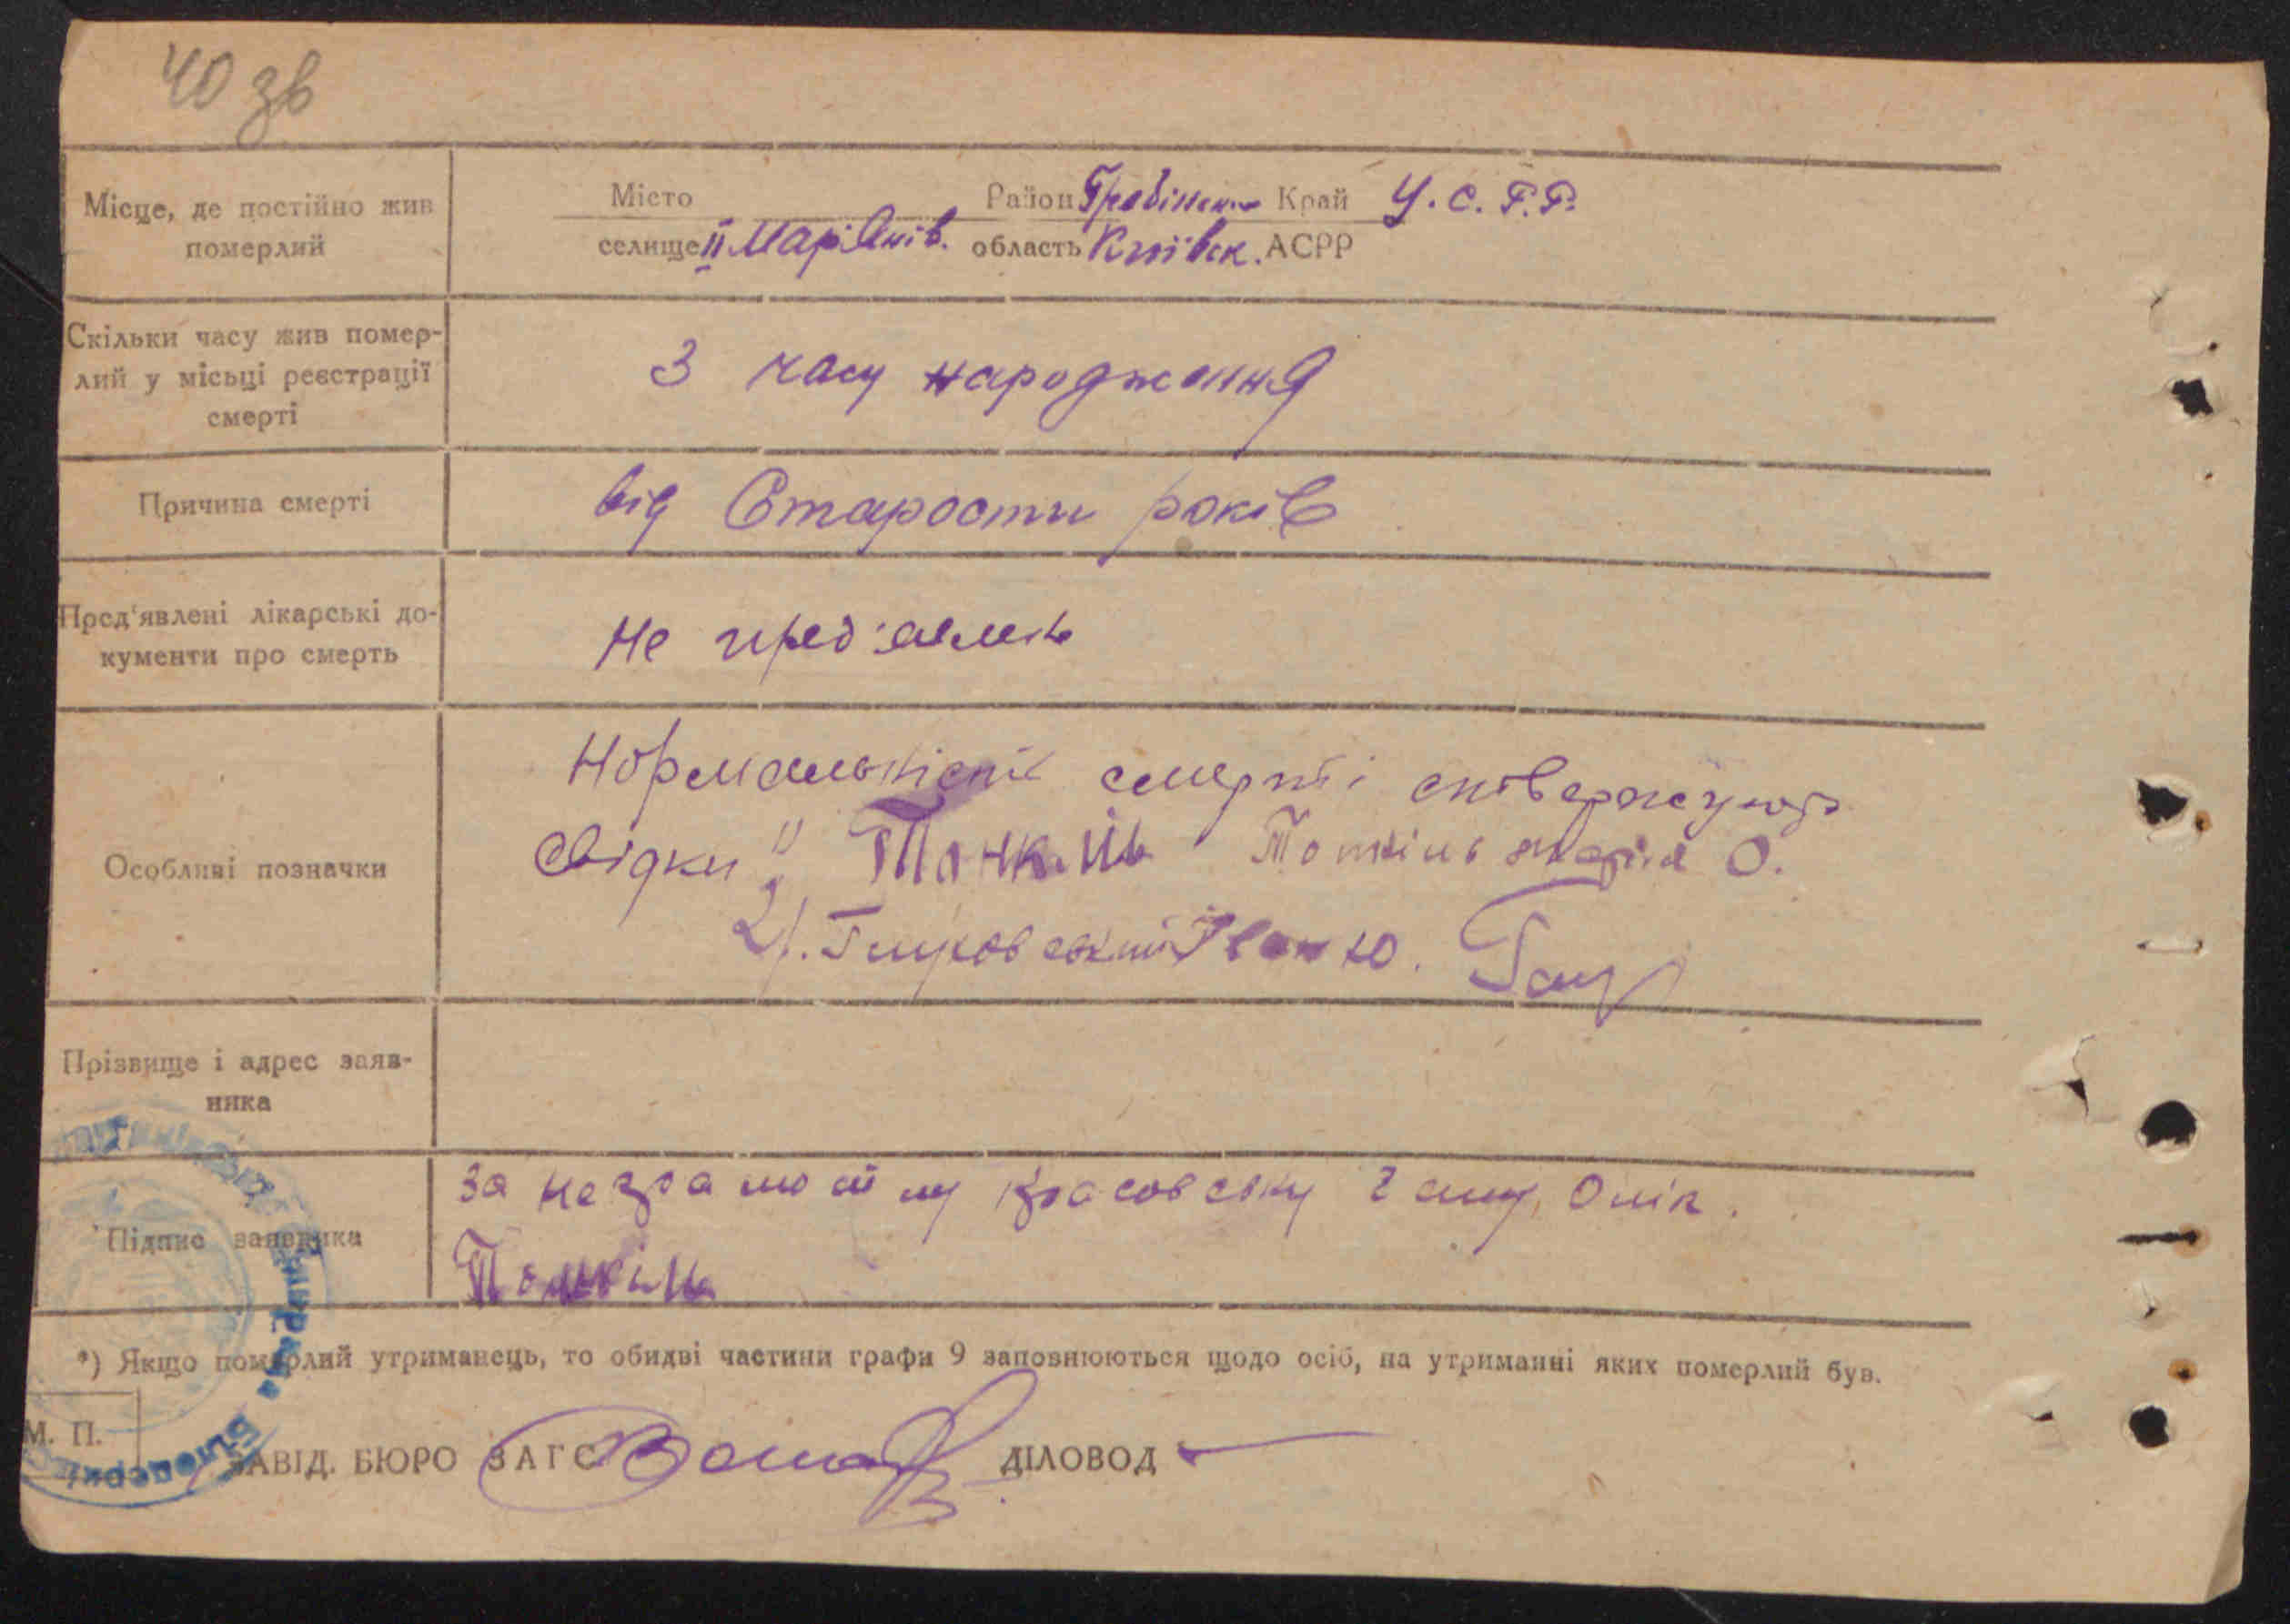 40 зв
Місце, де постійно жив
померлий
Місто
селище II Мар'янів.
Район Гребінськ. Край У.С.Р.Р.
область Київськ. АСРР
Скільки часу жив помер-
лий у місьці реєстрації
смерті
З часу народження
Причина смерті
від Старости років
Пред'явлені лікарські до-
кументи про смерть
Не пред'явлень
Особливі позначки
Нормальність смерті стверджують
свідки
2/. Ю.
Прізвище і адрес заяв-
ника
Підпис заявника
За неграмотну Красовську
*) Якщо померлий утриманець, то обидві частини графи 9 заповнюються щодо осіб, на утриманні яких померлий був.
М. П.
ЗАВІД. БЮРО ЗАГС
ДІЛОВОД